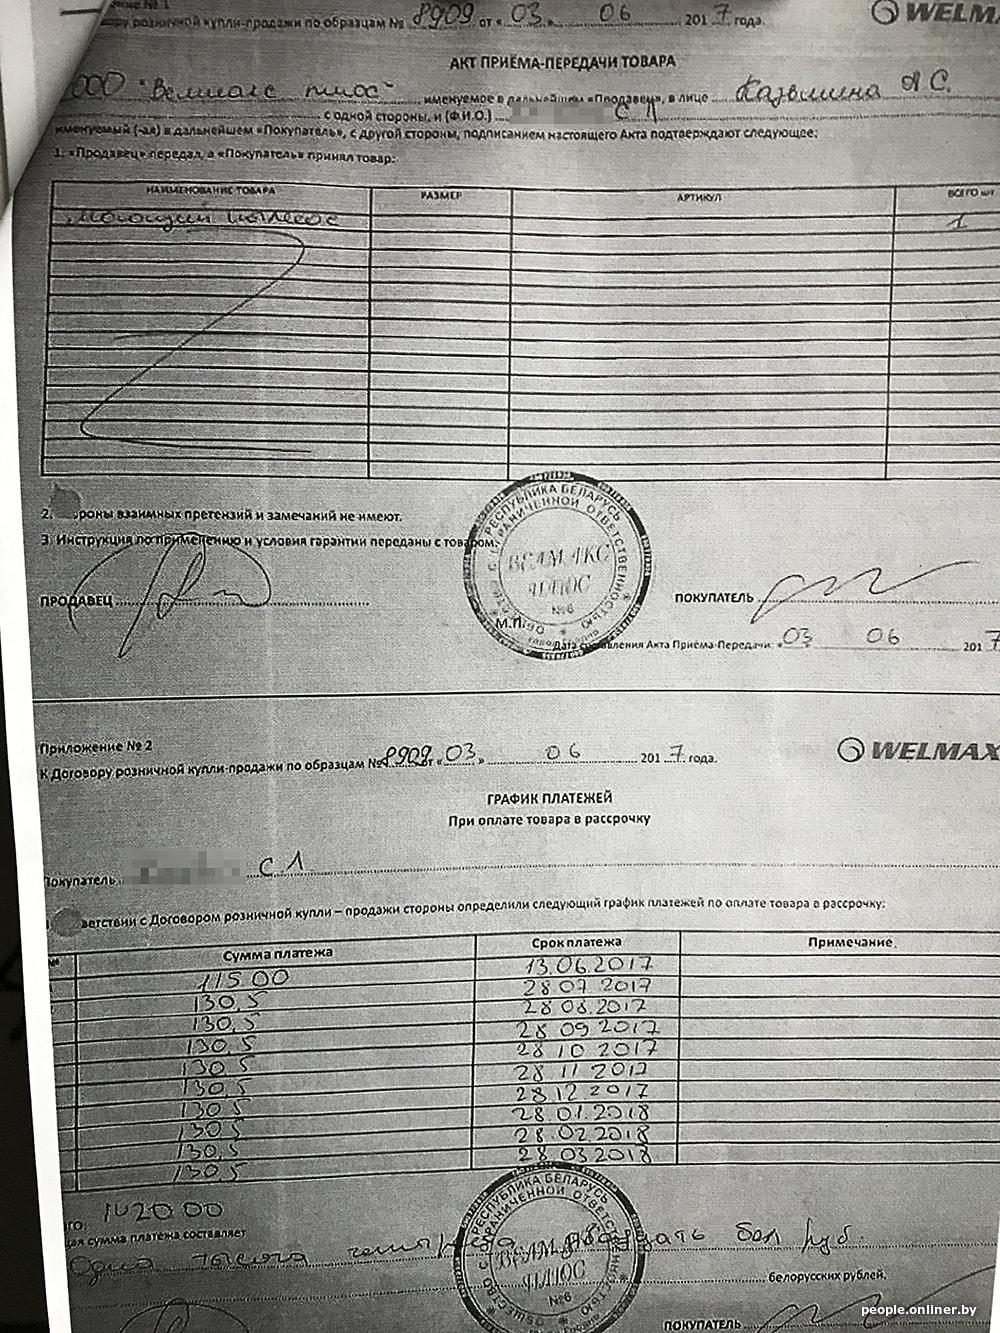 ору розничной купли-продажи по образцам № 8909 от «03» 06 2017 года. WELMA
АКТ ПРИЁМА-ПЕРЕДАЧИ ТОВАРА
ООО "Велмакс плюс" именуемое в дальнейшем «Продавец», в лице А С.
с одной стороны, и (Ф.И.О.) С Л
именуемый (-ая) в дальнейшем «Покупатель», с другой стороны, подписанием настоящего Акта подтверждают следующее:
1. «Продавец» передал, а «Покупатель» принял товар:
НАИМЕНОВАНИЕ ТОВАРА РАЗМЕР АРТИКУЛ ВСЕГО шт
Моющий пылесос 1
2. роны взаимных претензий и замечаний не имеют.
3. Инструкция по применению и условия гарантии переданы с товаром.
РЕСПУБЛИКА БЕЛАРУСЬ
ОБЩЕСТВО С ОГРАНИЧЕННОЙ ОТВЕТСТВЕННОСТЬЮ
ВЕЛМАКС
ПЛЮС
№6
ПРОДАВЕЦ ПОКУПАТЕЛЬ
М.П.
Дата составления Акта Приёма-Передачи: «03 06 2017
Приложение № 2
К Договору розничной купли-продажи по образцам № 8909 от «03» 06 2017 года. WELMAX
ГРАФИК ПЛАТЕЖЕЙ
При оплате товара в рассрочку
Покупатель С Л
ветствии с Договором розничной купли – продажи стороны определили следующий график платежей по оплате товара в рассрочку:
Сумма платежа Срок платежа Примечание
115.00 13.06.2017
130,5 28 07 2017
130,5 28 08.2017
130,5 28 09 2017
130,5 28 10 2017
130,5 28 11 2017
130,5 28.12 2017
130,5 28.01.2018
130,5 28.02.2018
130,5 28.03 2018
130.5
го: 1420.00
щая сумма платежа составляет
Одна тысяча четыреста двадцать бел руб.
РЕСПУБЛИКА БЕЛАРУСЬ
ОБЩЕСТВО С ОГРАНИЧЕННОЙ ОТВЕТСТВЕННОСТЬЮ
ВЕЛМАКС
ПЛЮС
№6
белорусских рублей.
ПОКУПАТЕЛЬ
people.onliner.by